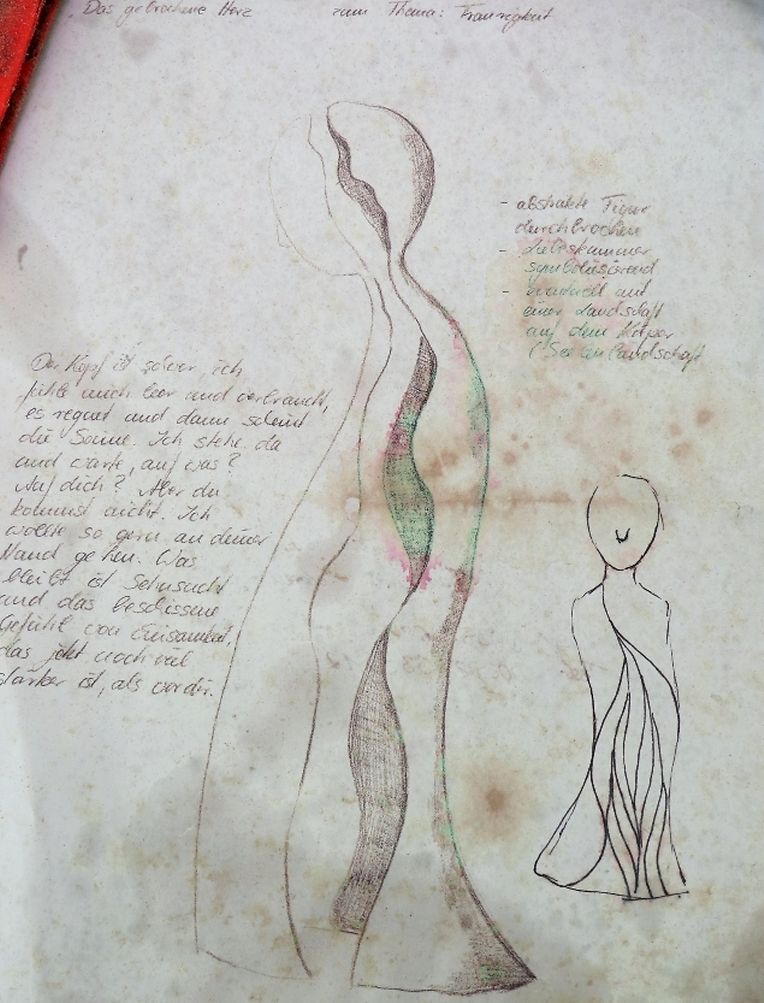 Das gebrochene Herz zum Thema: Traurigkeit
- abstrakte Figur
durchbrochen
- Liebeskummer
symbolisierend
- eventuell mit
einer Landschaft
auf dem Körper
(Seelenlandschaft
Der Kopf ist schwer, ich
fühle mich leer und verbraucht,
es regnet und dann scheint
die Sonne. Ich stehe da
und warte, auf was?
Auf dich? Aber du
kommst nicht. Ich
wollte so gern an deiner
Hand gehen. Was
bleibt ist Sehnsucht
und das beschissene
Gefühl von Einsamkeit,
das jetzt noch viel
stärker ist, als vorher.